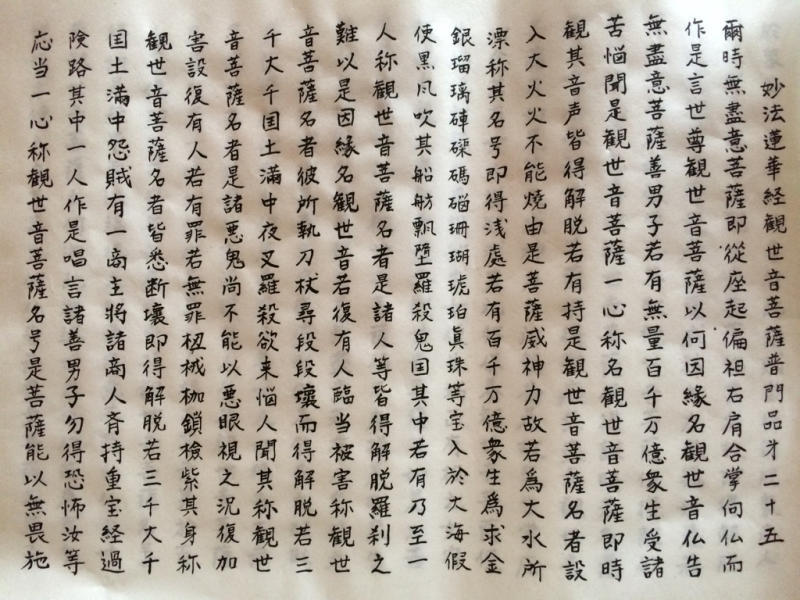 妙法蓮華経観世音菩薩普門品才二十五
爾時無盡意菩薩即從座起偏袒右肩合掌向仏而
作是言世尊觀世音菩薩以何因緣名觀世音仏告
無盡意菩薩善男子若有無量百千万億衆生受諸
苦悩聞是觀世音菩薩一心称名觀世音菩薩即時
觀其音声皆得解脱若有持是觀世音菩薩名者設
入大火火不能焼由是菩薩威神力故若為大水所
漂称其名号即得浅處若有百千万億衆生為求金
銀瑠璃硨磲碼碯珊瑚琥珀眞珠等宝入於大海假
使黒风吹其船舫飄墮羅殺鬼国其中若有乃至一
人称觀世音菩薩名者是諸人等皆得解脱羅刹之
難以是因緣名觀世音若復有人臨当被害称觀世
音菩薩名者彼所執刀杖尋段段壞而得解脱若三
千大千国土滿中夜叉羅殺欲来悩人聞其称觀世
音菩薩名者是諸悪鬼尚不能以悪眼視之況復加
害設復有人若有罪若無罪杻械枷鎖檢紫其身称
觀世音菩薩名者皆悉断壞即得解脱若三千大千
国土滿中怨賊有一商主將諸商人斉持重宝経過
険路其中一人作是唱言諸善男子勿得恐怖汝等
応当一心称觀世音菩薩名号是菩薩能以無畏施